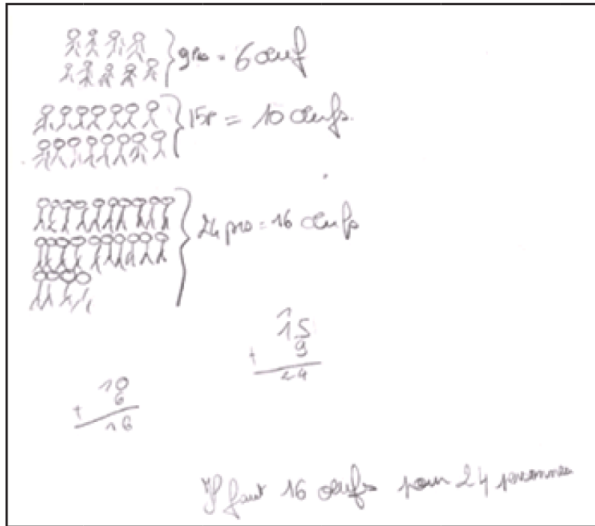 9 pro = 6 œuf
15p = 10 œufs
24 pro = 16 œufs
1
15
+ 9
24
10
+ 6
16
Il faut 16 œufs pour 24 personnes